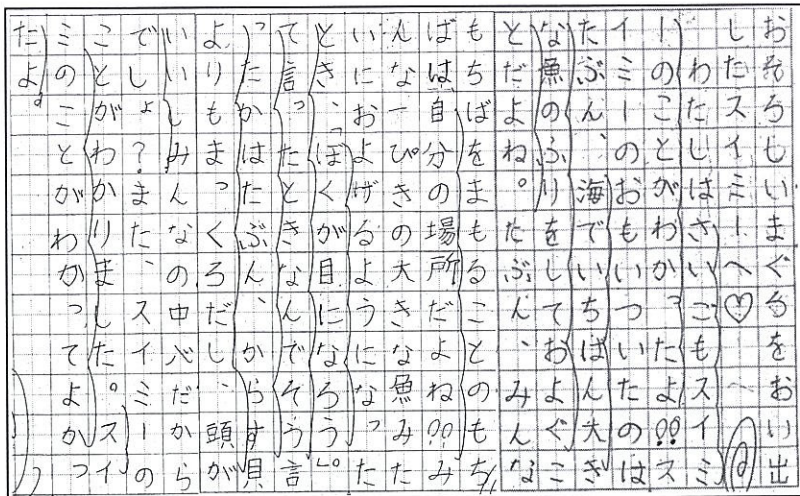 おそろしいまぐろをおい出
したスイミーへ♡へ
わたしはさいごもスイミ
ーのことがわかったよ!!ス
イミーのおもいついたのは
たぶん、海でいちばん大き
な魚のふりをしておよぐこ
とだよね。たぶん、みんな
もちばをまもることのもち
ばは自分の場所だよね!!み
んな一ぴきの大きな魚みた
いにおよげるようになった
とき、「ぼくが目になろう。」
て言ったときなんでそう言
ったかはたぶん、からす貝
よりもまっくろだし、頭が
いいしみんなの中心だから
でしょ?また、スイミーの
ことがわかりました。スイ
ミのことがわかってよかっ
たよ。